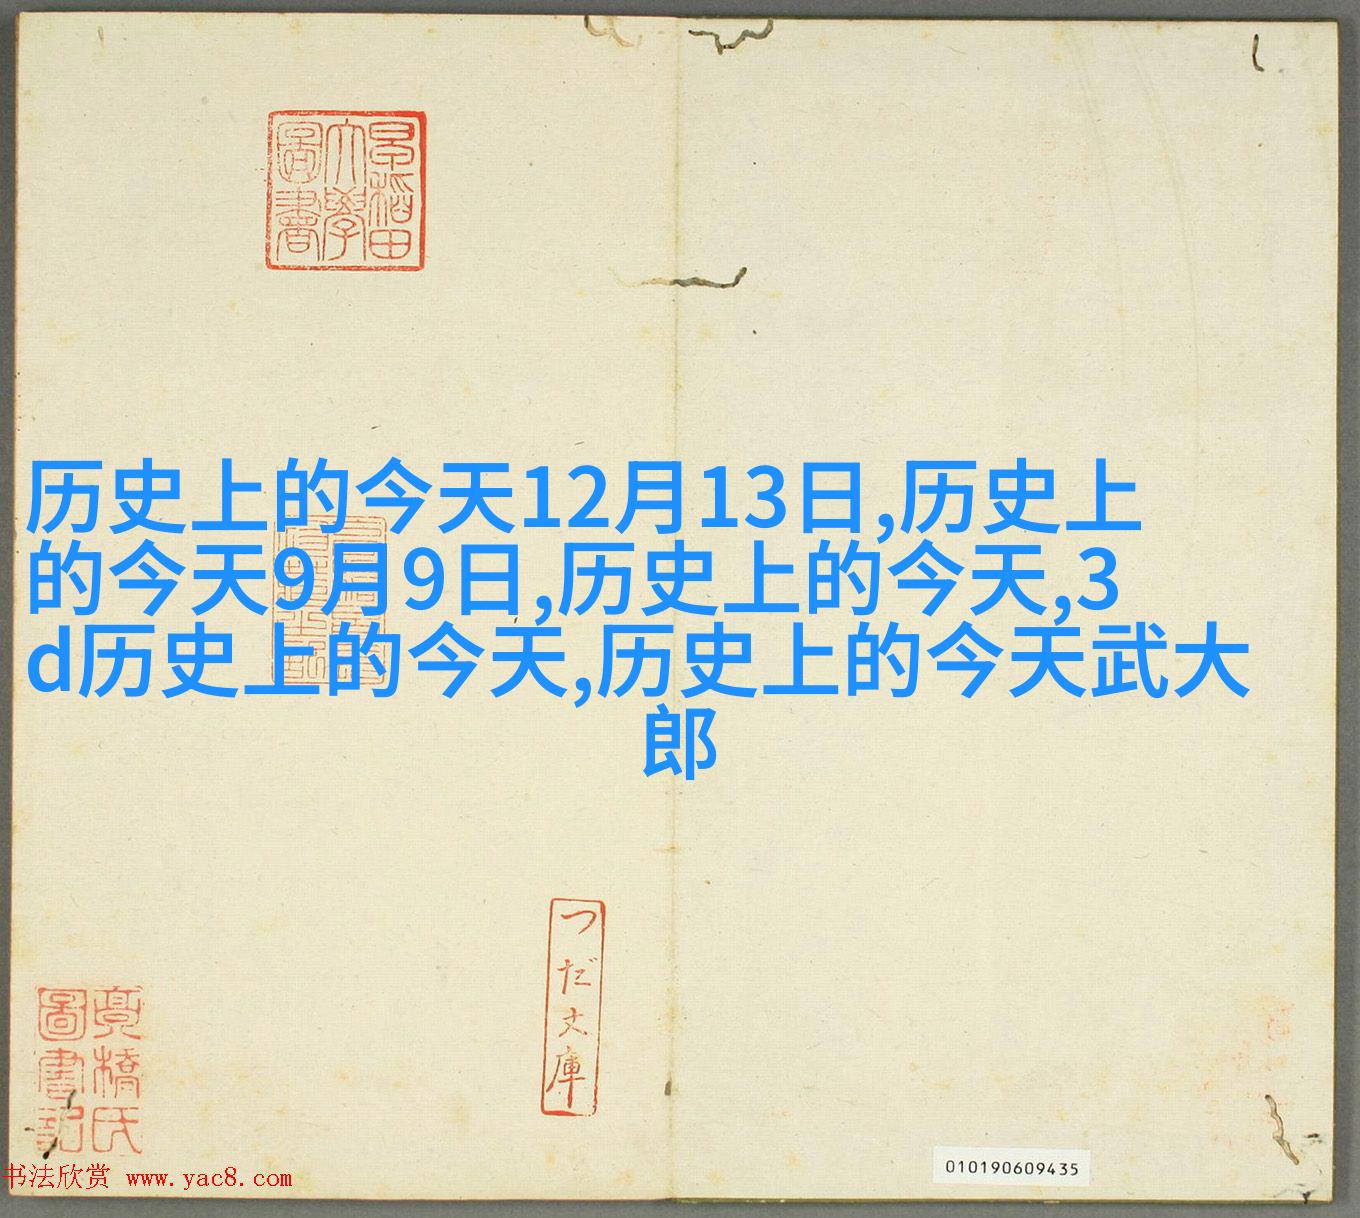 早稻田
大學
圖書
历史上的今天12月13日,历史上
的今天9月9日,历史上的今天,3
d历史上的今天,历史上的今天武大
郎
つだ文庫
橋氏
圖書記
书法欣赏 www.yac8.com
010190609435